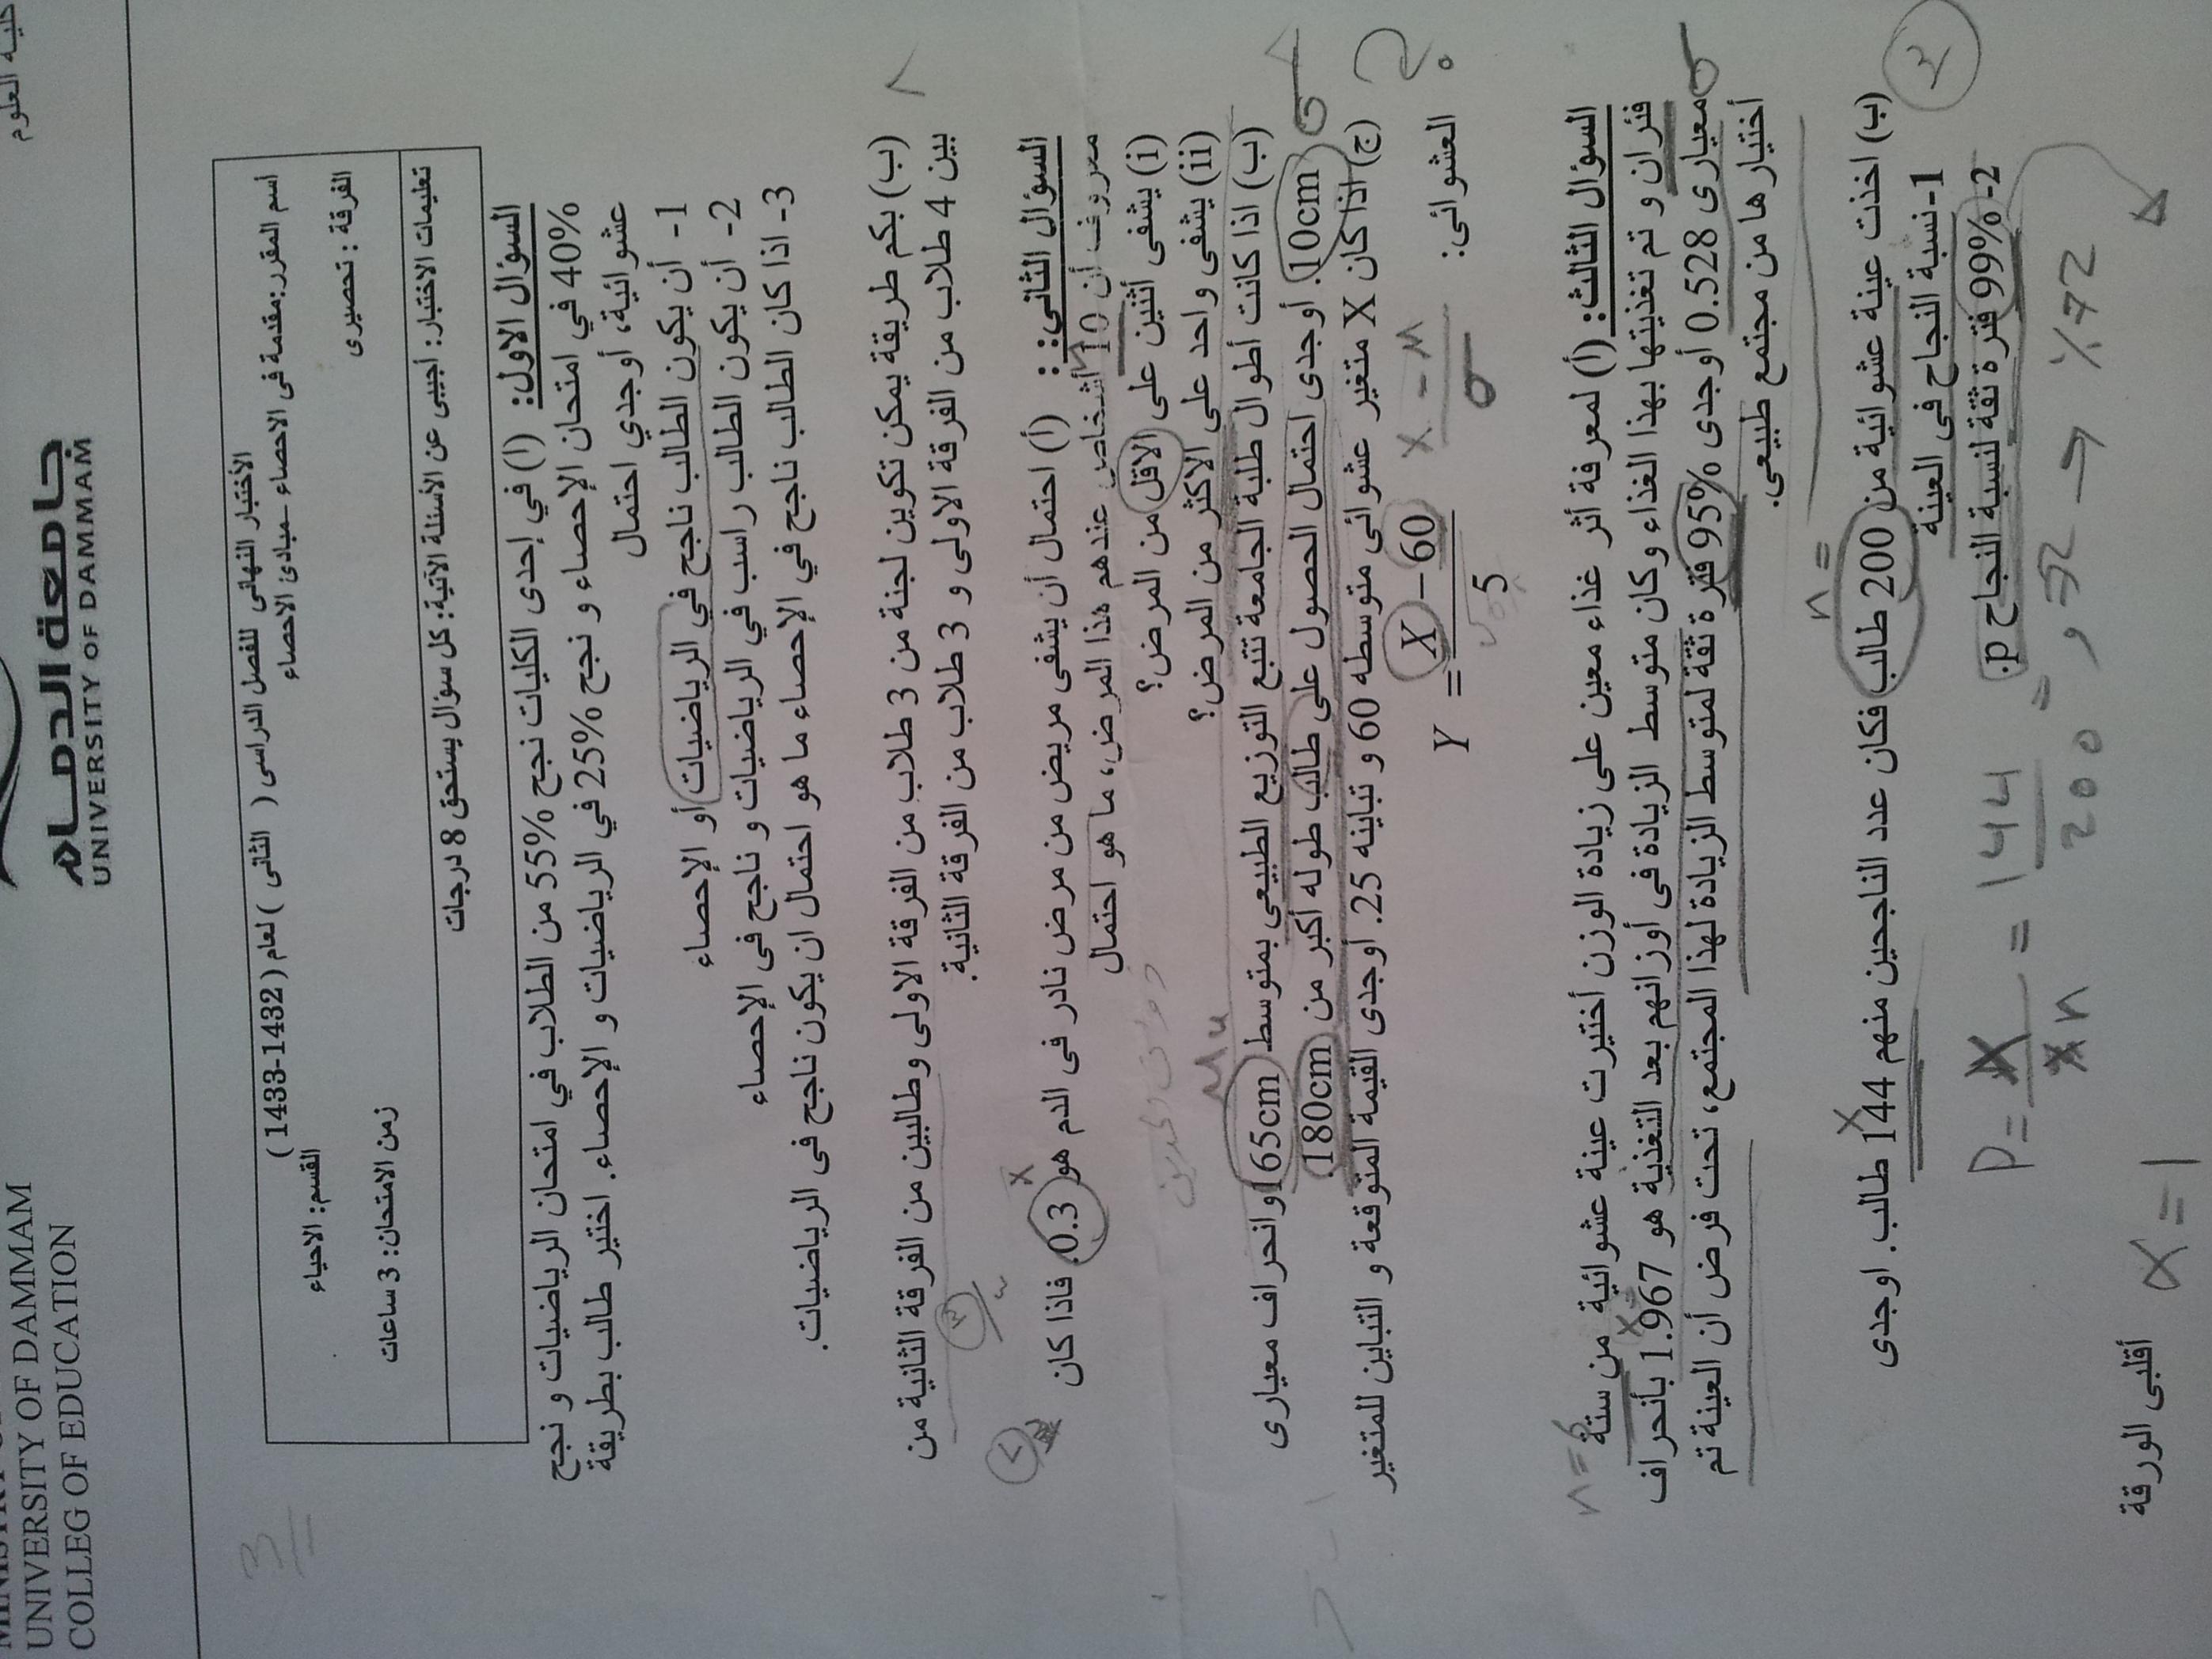 كلية العلوم
جامعة الدمام
UNIVERSITY OF DAMMAM
UNIVERSITY OF DAMMAM
COLLEG OF EDUCATION
الأختبار النهائى للفصل الدراسى ( الثانى ) لعام ( 1432-1433 )
اسم المقرر: مقدمة فى الاحصاء -مبادئ الاحصاء
القسم: الاحياء
الفرقة : تحصيرى
زمن الامتحان: 3 ساعات
تعليمات الاختبار: أجيبى عن الأسئلة الآتية: كل سؤال يستحق 8 درجات
السؤال الاول: (ا) في إحدى الكليات نجح 55% من الطلاب في امتحان الرياضيات و نجح
40% في امتحان الإحصاء و نجح 25% في الرياضيات و الإحصاء. اختير طالب بطريقة
عشوائية، أوجدي احتمال
1- أن يكون الطالب ناجح في الرياضيات أو الإحصاء
2- أن يكون الطالب راسب في الرياضيات و ناجح فى الإحصاء
3- اذا كان الطالب ناجح في الإحصاء ما هو احتمال ان يكون ناجح فى الرياضيات.
(ب) بكم طريقة يمكن تكوين لجنة من 3 طلاب من الفرقة الاولى وطالبين من الفرقة الثانية من
بين 4 طلاب من الفرقة الاولى و 3 طلاب من الفرقة الثانية.
السؤال الثاني: : (أ) احتمال أن يشفى مريض من مرض نادر فى الدم هو 0.3. فاذا كان
معروف أن 10 أشخاص عندهم هذا المرض، ما هو احتمال
(i) يشفى أثنين على الاقل من المرض؟
(ii) يشفى واحد على الاكثر من المرض؟
(ب) اذا كانت أطوال طلبة الجامعة تتبع التوزيع الطبيعى بمتوسط 165cm وانحراف معيارى
10cm. أوجدى احتمال الحصول على طالب طوله أكبر من 180cm.
(ج) اذا كان X متغير عشوائى متوسطه 60 و تباينه 25. أوجدى القيمة المتوقعة و التباين للمتغير
العشوائى:
Y = X – 60 / 5
x - μ / σ
n = 6
السؤال الثالث: (أ) لمعرفة أثر غذاء معين على زيادة الوزن أختيرت عينة عشوائية من ستة
فئران و تم تغذيتها بهذا الغذاء وكان متوسط الزيادة فى أوزانهم بعد التغذية هو 1.967 بأنحراف
معيارى 0.528 أوجدى 95% فترة ثقة لمتوسط الزيادة لهذا المجتمع، تحت فرض أن العينة تم
أختيارها من مجتمع طبيعى.
n =
(ب) اخذت عينة عشوائية من 200 طالب فكان عدد الناجحين منهم 144 طالب. اوجدى
1-نسبة النجاح فى العينة
2- 99% فترة ثقة لنسبة النجاح p.
P = x / n = 144 / 200 = , 72 → % 72
α = 1
أقلبى الورقة